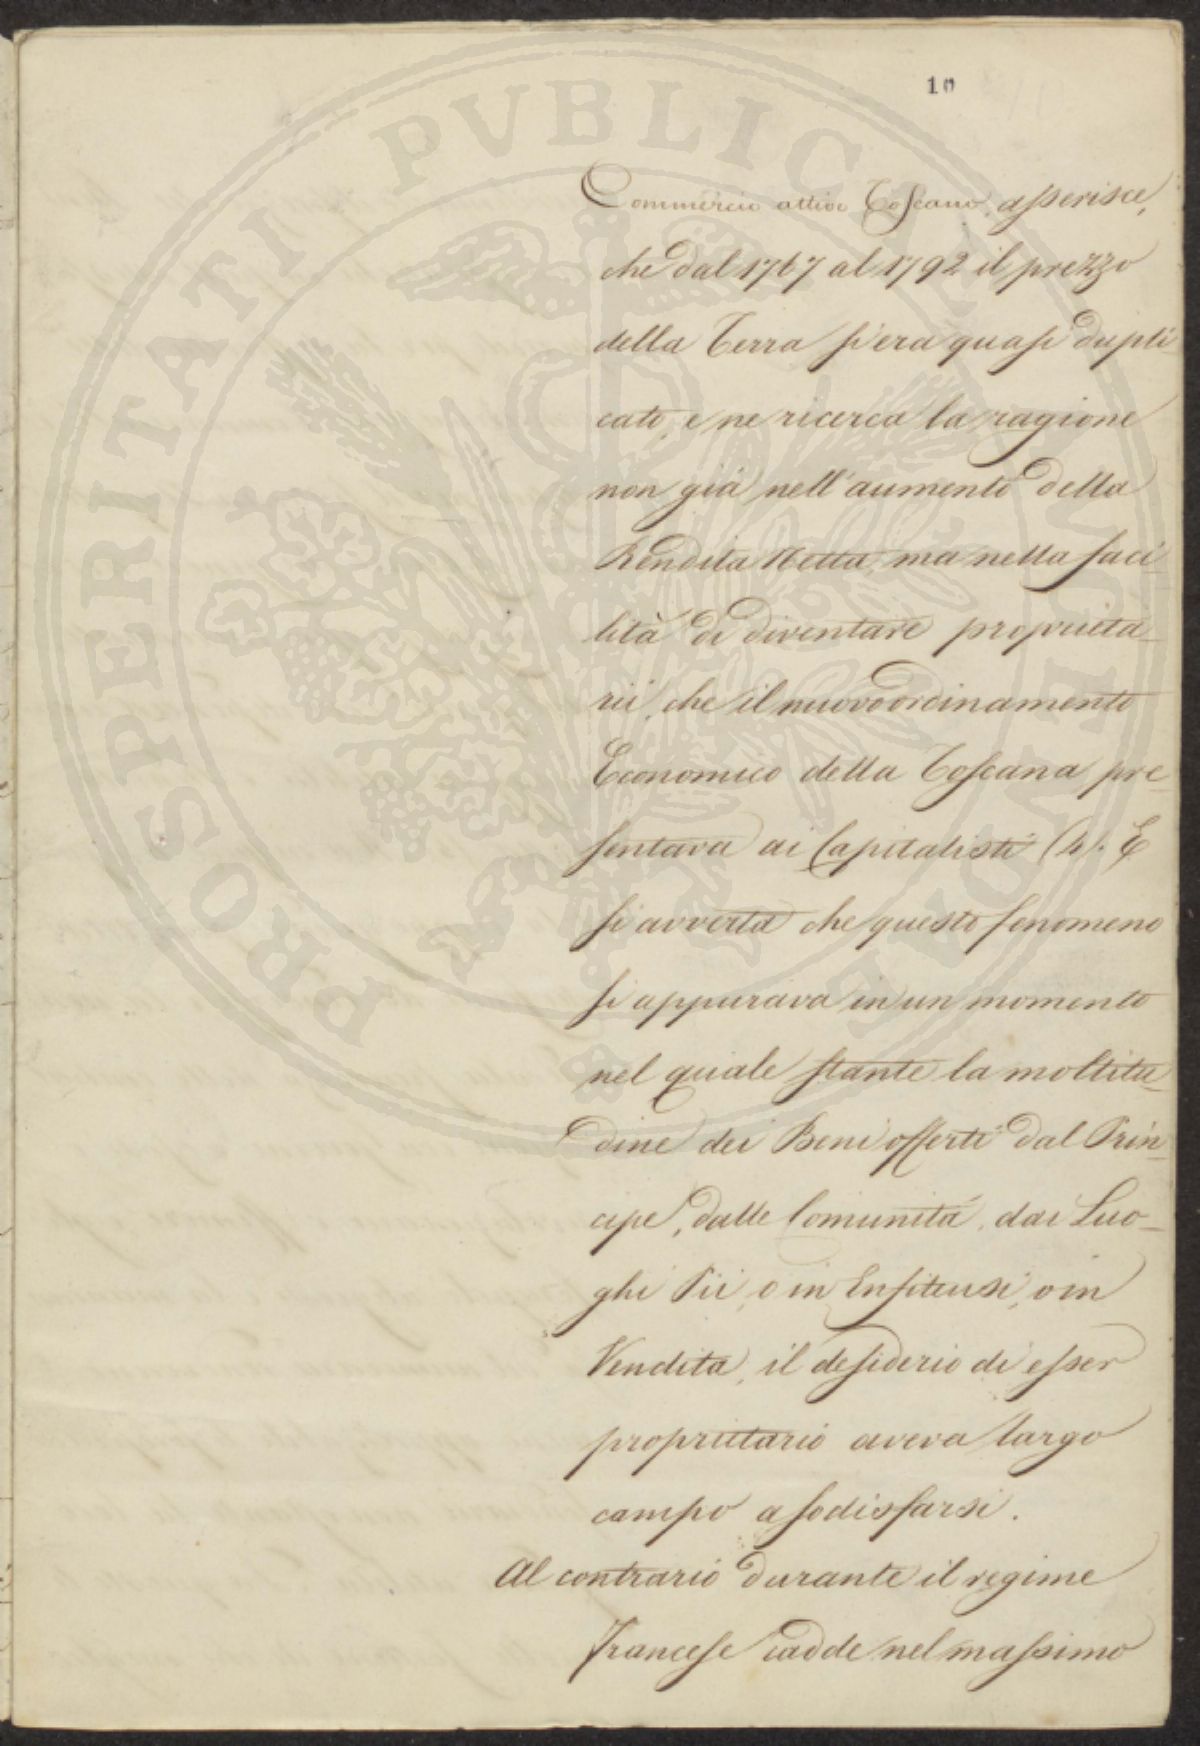 10
Commercio attivo Toscano, asserisce,
che dal 1767 al 1792 il prezzo
della Terra s'era quasi dupli-
cato, e ne ricerca la ragione
non già nell'aumento della
Rendita Netta, ma nella faci-
lità di diventare proprieta-
rii, che il nuovo ordinamento
Economico della Toscana pre-
sentava ai Capitalisti (4). E
si avverta che questo fenomeno
si appurava in un momento
nel quale stante la moltitu-
dine dei Beni offerti dal Prin-
cipe, dalle Comunità, dai Luo-
ghi Pii, o in Enfiteusi, o in
Vendita, il desiderio di esser
proprietario aveva largo
campo a sodisfarsi.
Al contrario durante il regime
Francese cadde nel massimo
PROSPERITATI PVBLICAE AVGENDAE